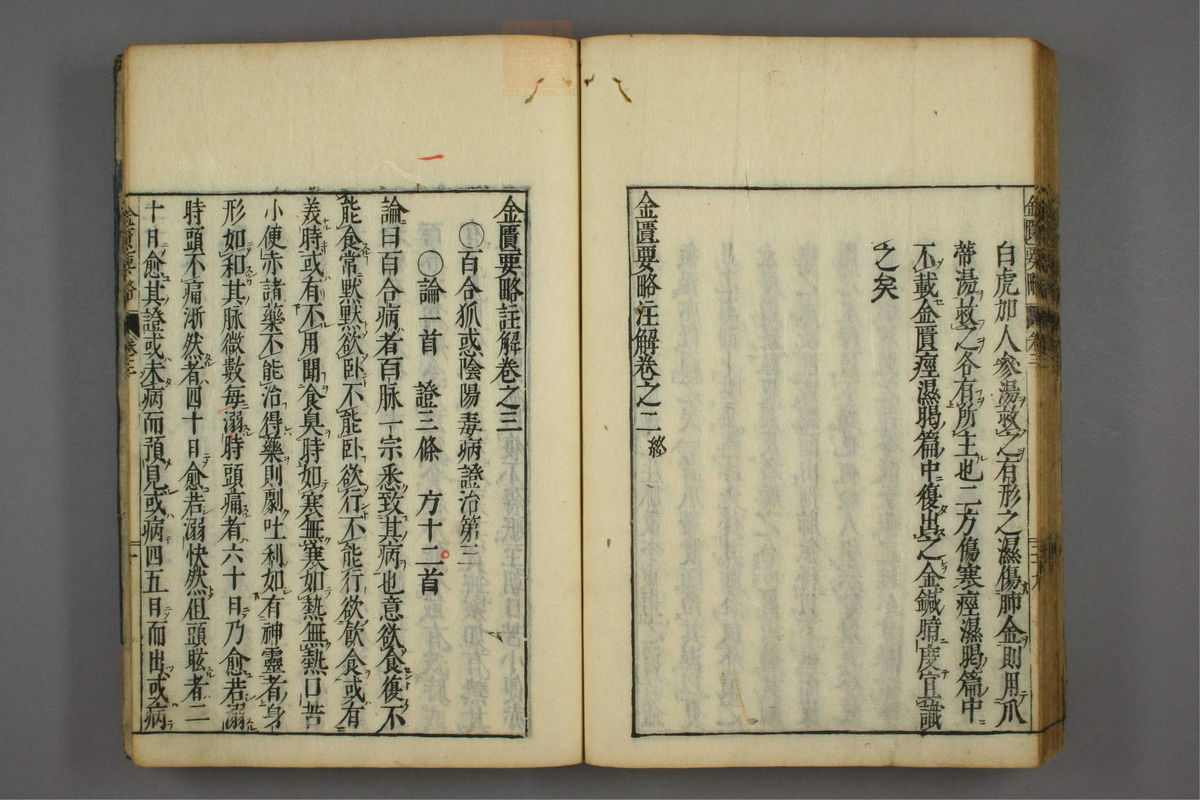 白虎加人參湯救之有形之濕傷肺金則用瓜
蒂湯救之各有所主也二方傷寒痙濕暍篇中
不載金匱痙濕暍篇中復出之金鍼暗度宜識
之矣
金匱要略注解卷之二終
金匱要略註解卷之三
○百合狐惑陰陽毒病證治第三
○論一首 證三條 方十二首
論曰百合病者百脉一宗悉致其病也意欲食復不
能食常默默欲卧不能卧欲行不能行欲飲食或有
美時或有不用聞食臭時如寒無寒如熱無熱口苦
小便赤諸藥不能治得藥則劇吐利如有神靈者身
形如和其脉微數每溺時頭痛者六十日乃愈若溺
時頭不痛淅然者四十日愈若溺快然但頭眩者二
十日愈其證或未病而預見或病四五日而出或病
金匱要略